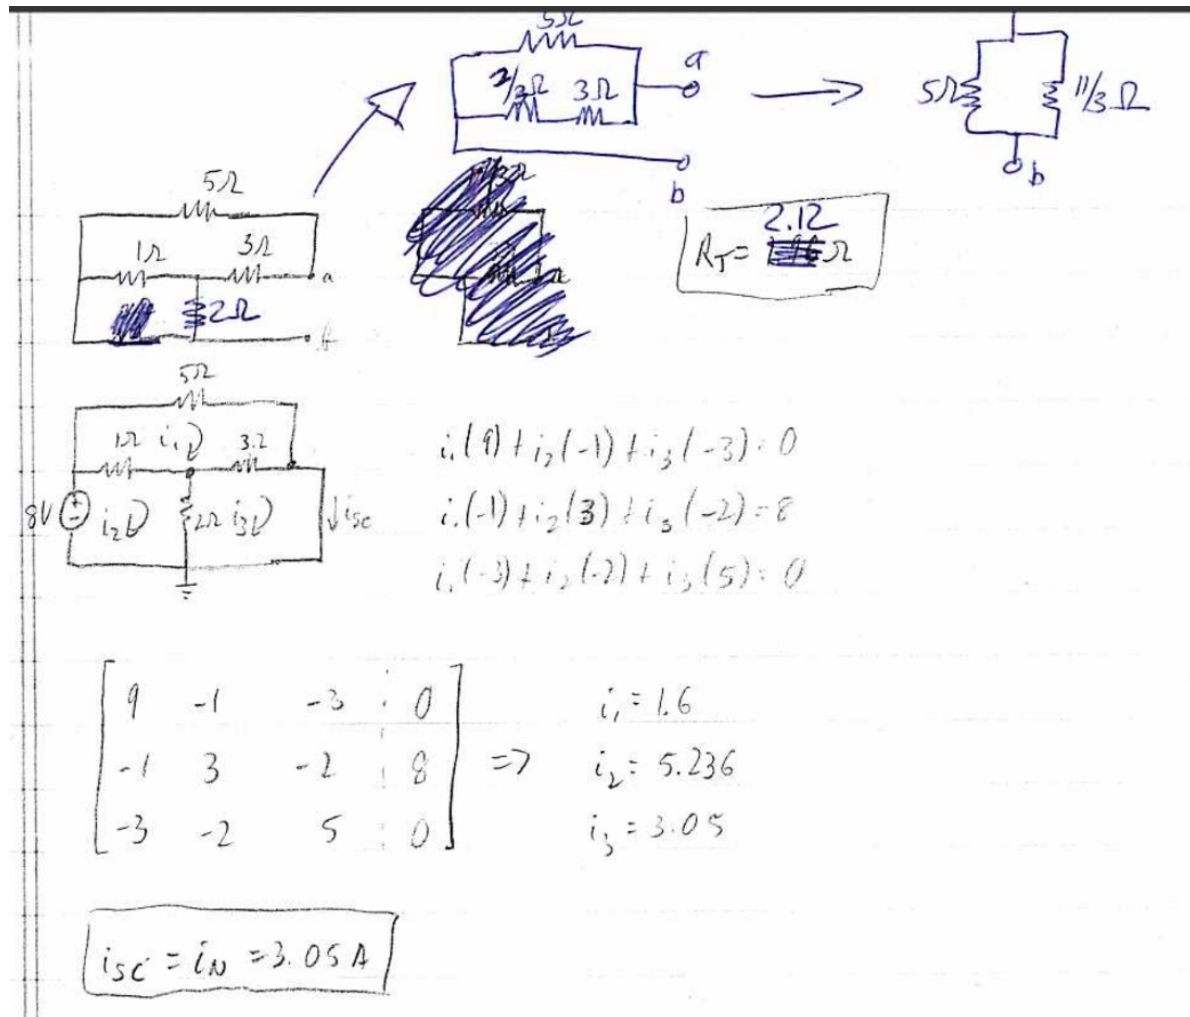 5Ω
2/3Ω 3Ω
a
b
5Ω 11/3 Ω
b
5Ω
1Ω 3Ω
a
2Ω
R_T = 2.12 Ω
5Ω
1Ω i₁ 3Ω
8V i₂ 2Ω i₃ ↓ isc
i₁(9) + i₂(-1) + i₃(-3) = 0
i₁(-1) + i₂(3) + i₃(-2) = 8
i₁(-3) + i₂(-2) + i₃(5) = 0
9 -1 -3 : 0
-1 3 -2 : 8
-3 -2 5 : 0
=>
i₁ = 1.6
i₂ = 5.236
i₃ = 3.05
isc = iN = 3.05 A